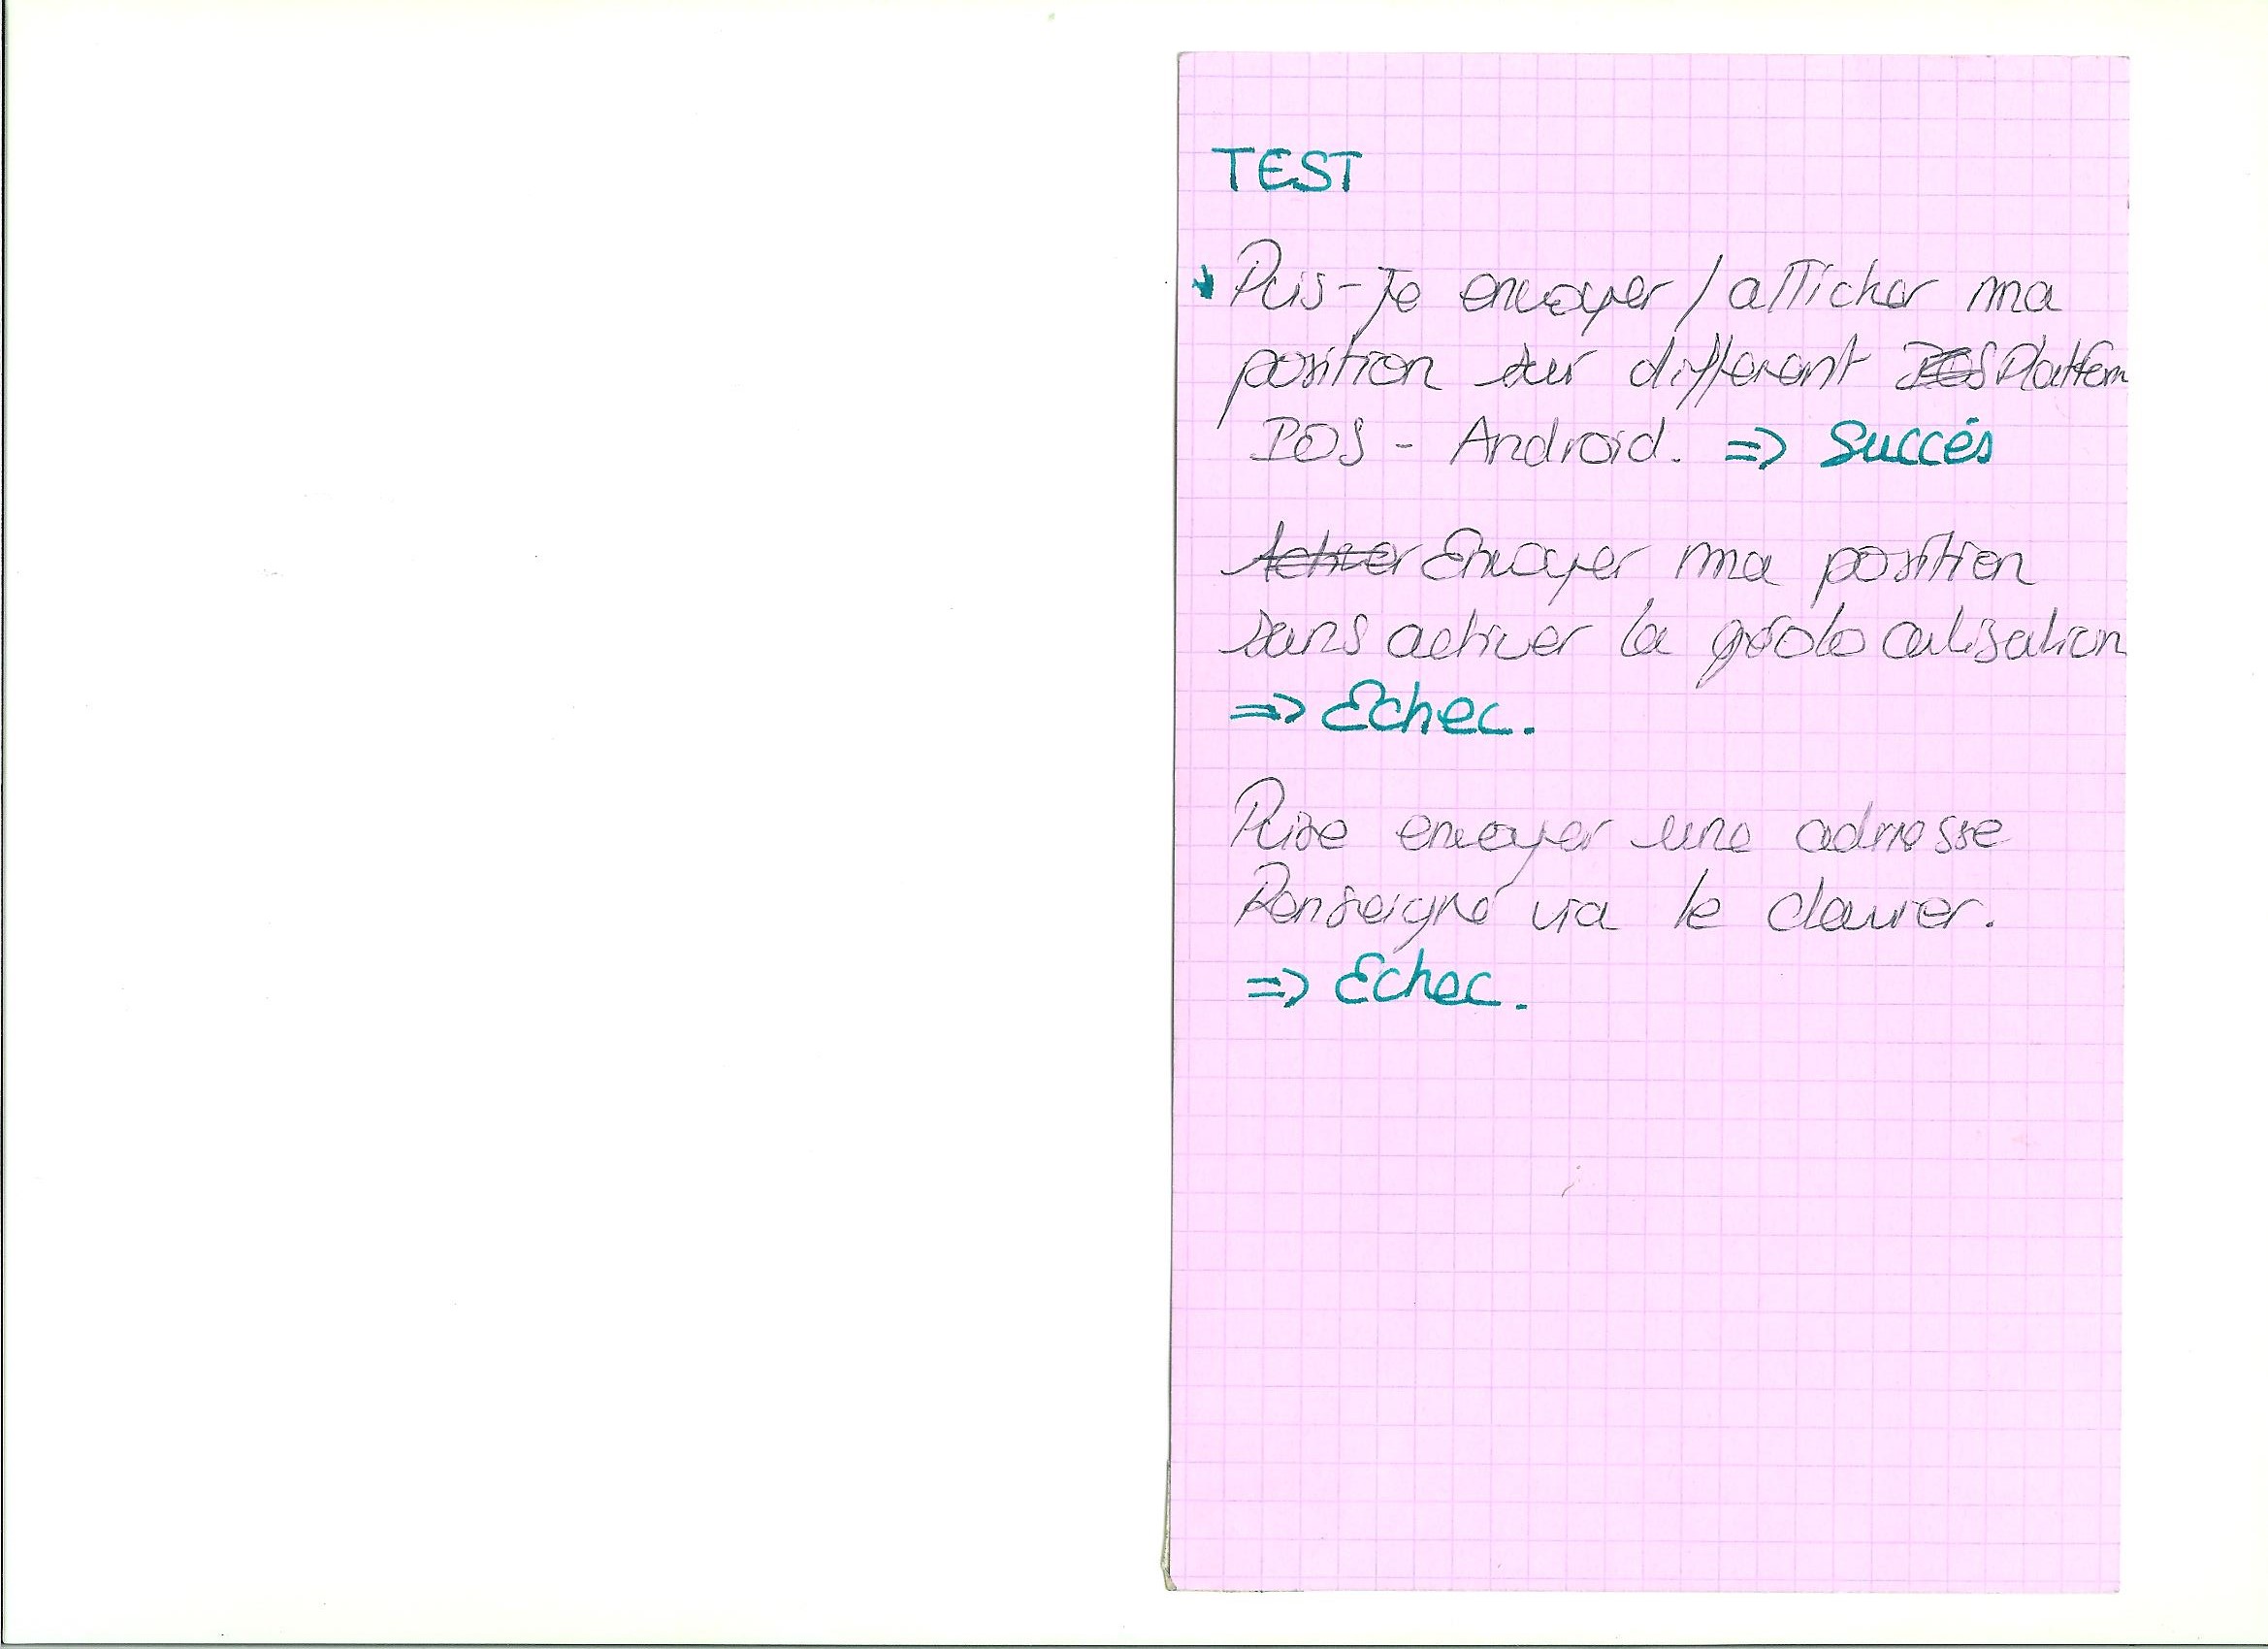 TEST
Puis-je envoyer / afficher ma
position sur différent IOS Platform
IOS - Android. => Succés
Activer Envoyer ma position
sans activer la géolocalisation
=> Echec.
Puise envoyer une adresse
Renseigné via le clavier.
=> Echec.